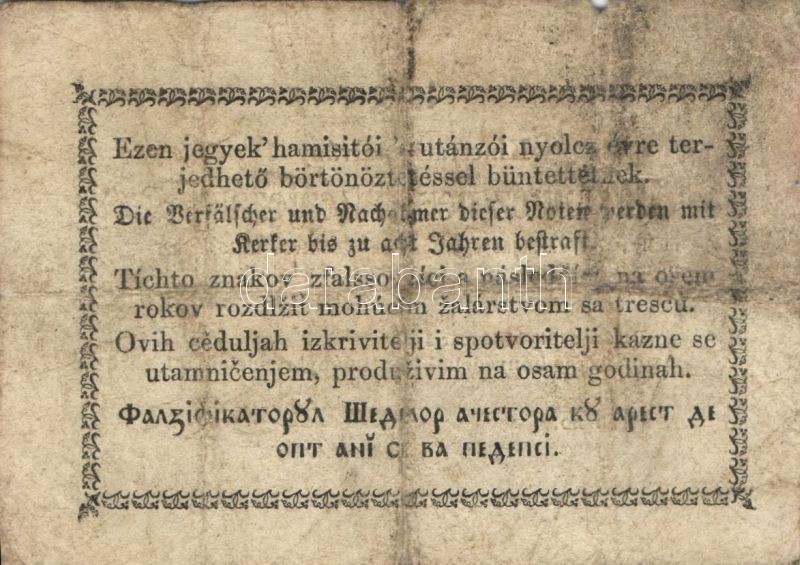 Ezen jegyek' hamisitói 's utánzói nyolcz évre ter-
jedhető börtönöztetéssel büntettetnek.
Die Verfälscher und Nachahmer dieser Noten werden mit
Kerker bis zu acht Jahren bestraft.
Tíchto znakov a na osem
rokov rozdlžiť mohúcim žalárstvom sa trescú.
Ovih cèduljah izkrivitelji i spotvoritelji kazne se
utamničenjem, produživim na osam godinah.
Фалзіфікаторꙋл Шеделор ачестора кꙋ арест де
опт анĭ се ва педепсі.
darabanth